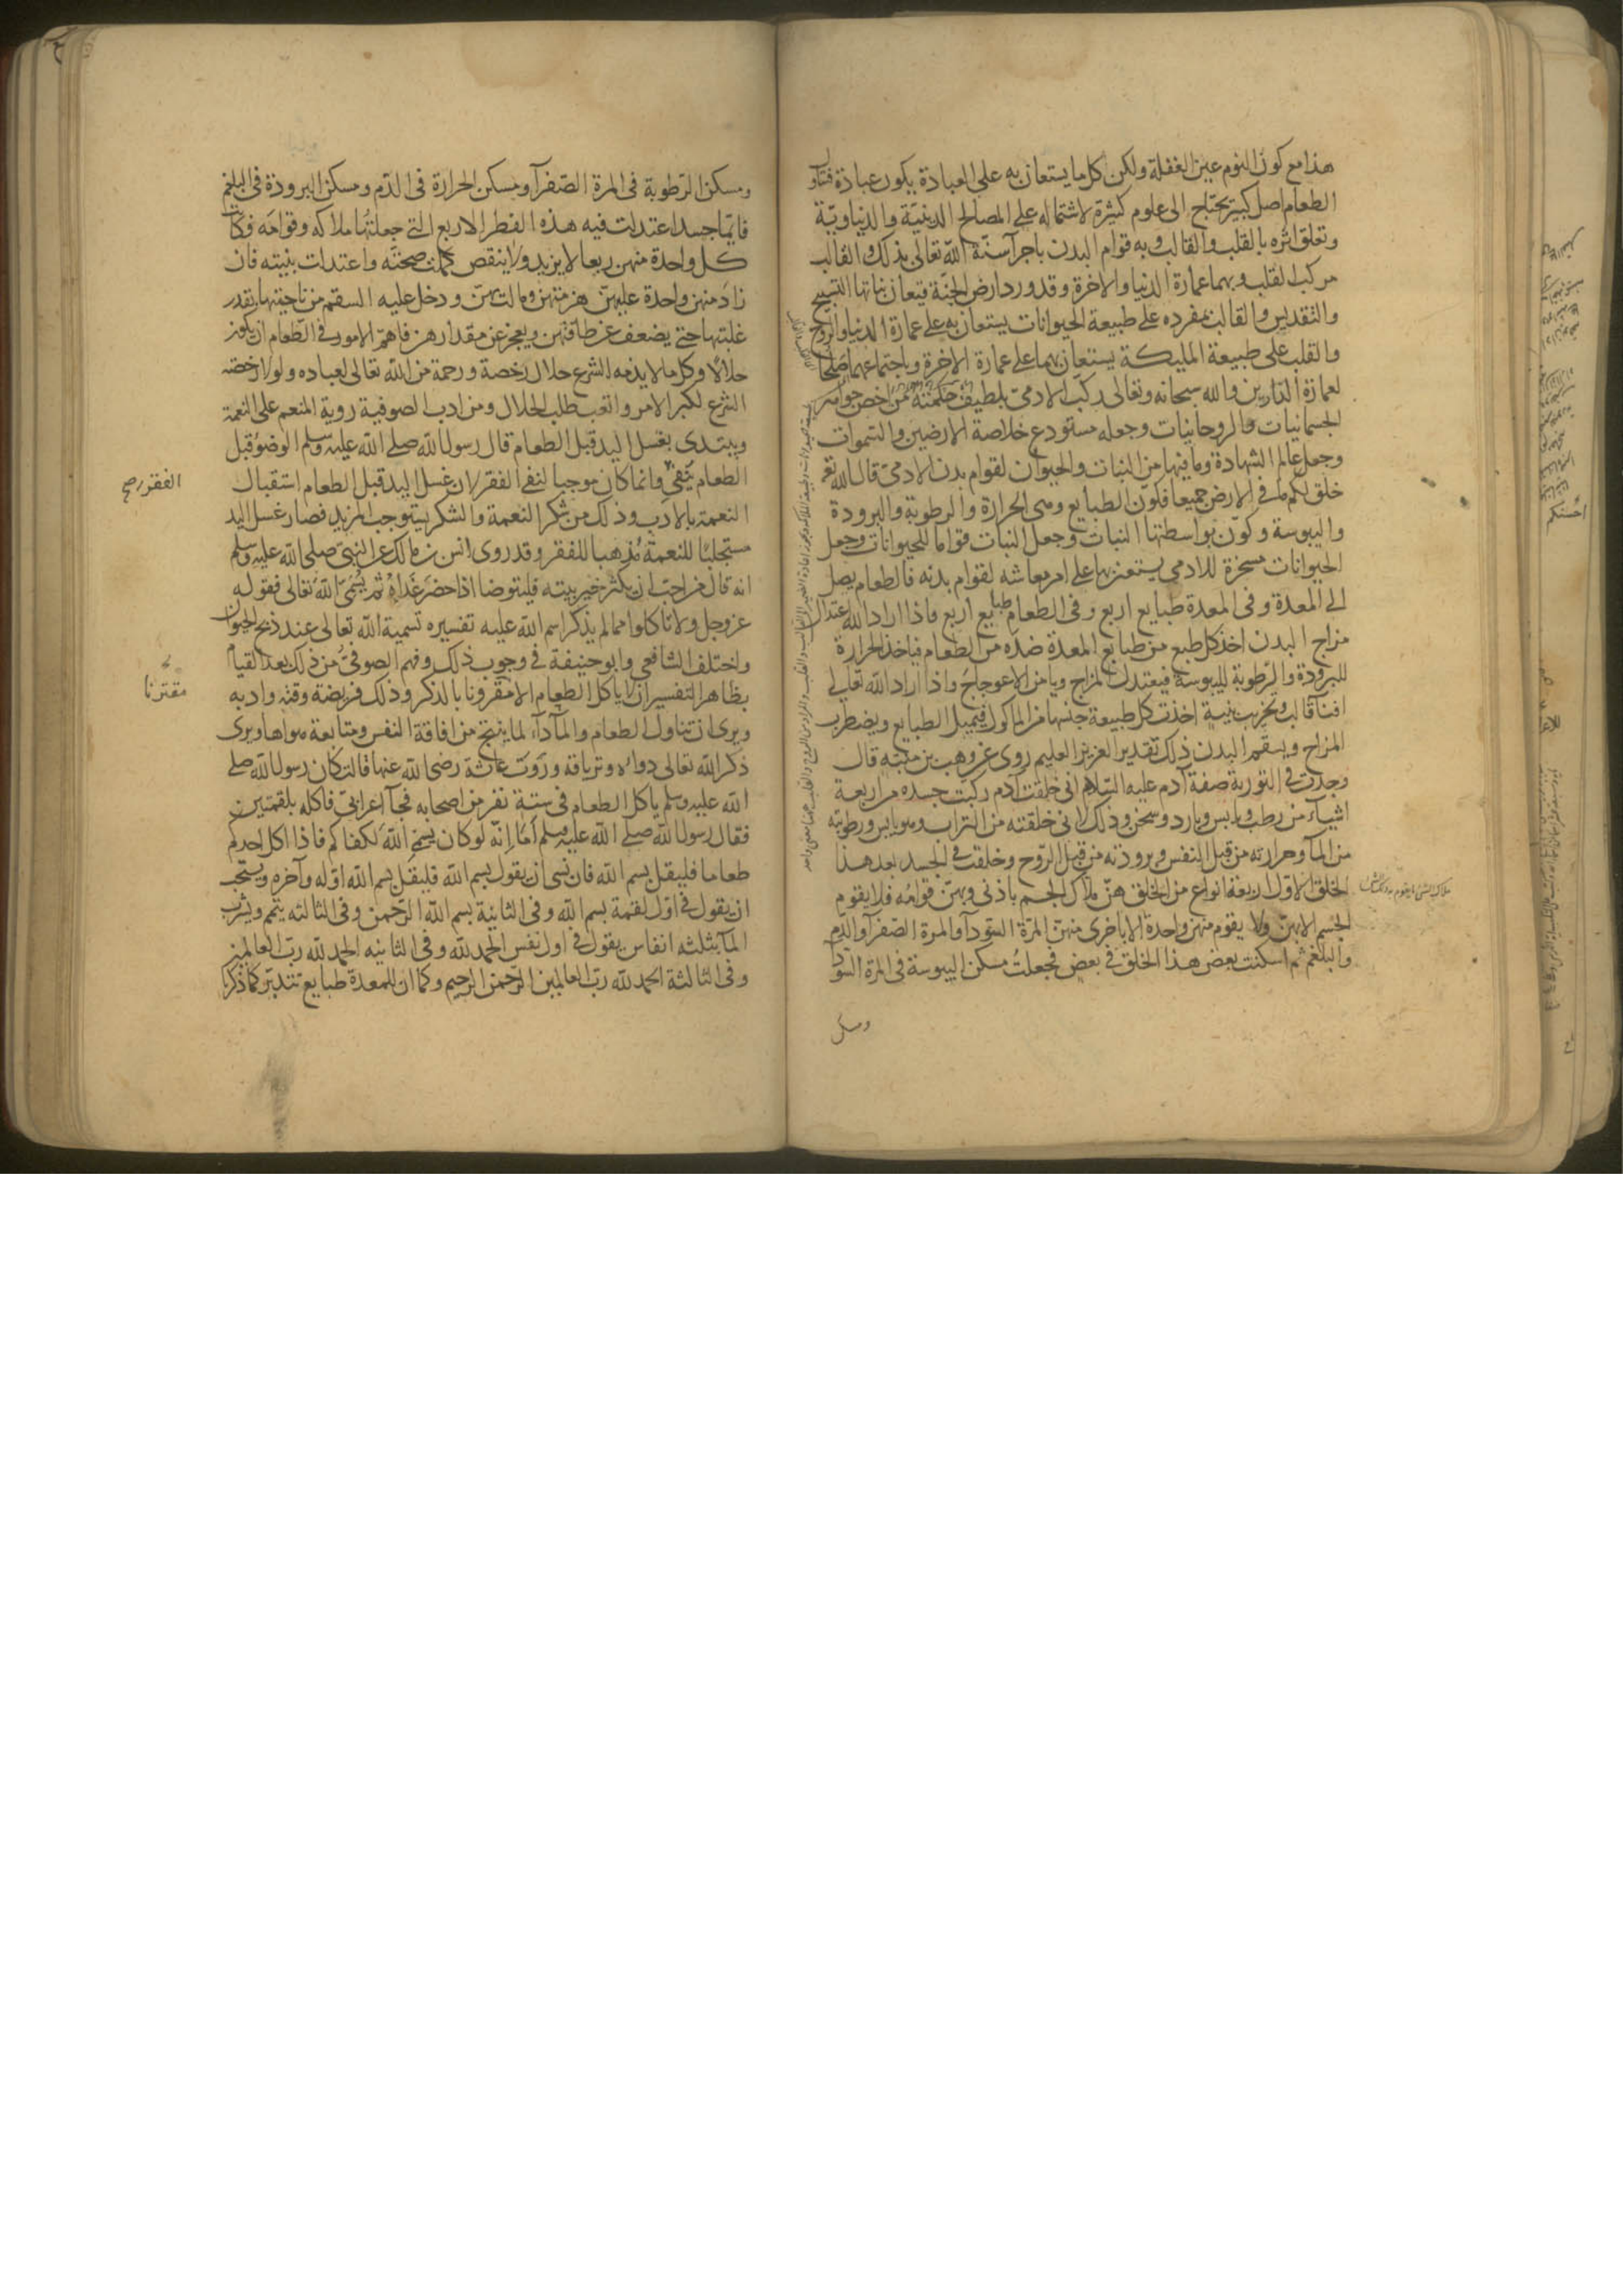 هذا مع كون النوم عين الغفلة ولكن كل ما يستعان به على العبادة يكون عبادة فتناول
الطعام اصل كبير يحتاج الى علوم كثيرة لاشتماله على المصالح الدينية والدنياوية
وتعلق اثره بالقلب والقالب وبه قوام البدن باجرآ سنة الله تعالى بذلك والقالب
مركب القلب وبهما عمارة الدنيا والاخرة وقد ورد ارض الجنة قيعان نباتها التسبيح
والتقديس والقالب بمفرده على طبيعة الحيوانات يستعان به على عمارة الدنيا والروح
والقلب على طبيعة المليكة يستعان بهما على عمارة الاخرة وباجتماعهما صلحا
لعمارة الدارين والله سبحانه وتعالى ركب الادمي بلطيف حكمته من اخص جواهر
الجسمانيات والروحانيات وجعله مستودع خلاصة الارضين والسموات
وجعل عالم الشهادة وما فيها من النبات والحيوان لقوام بدن الادمي قال الله تعالى
خلق لكم ما في الارض جميعا فكون الطبايع وهي الحرارة والرطوبة والبرودة
واليبوسة وكون بواسطتها النبات وجعل النبات قواما للحيوانات وجعل
الحيوانات مسخرة للادمي يستعين بها على امر معاشه لقوام بدنه فالطعام يصل
الى المعدة وفي المعدة طبايع اربع وفي الطعام طبايع اربع فاذا اراد الله اعتدال
مزاج البدن اخذ كل طبع من طبايع المعدة ضده من الطعام فياخذ الحرارة
للبرودة والرطوبة لليبوسة فيعتدل المزاج ويامن الاعوجاج واذا اراد الله تعالى
افنآ قالب وتخريب بنية اخذت كل طبيعة جنسها من الماكول فيميل الطبايع ويضطرب
المزاج ويسقم البدن ذلك تقدير العزيز العليم روى عن وهب بن منبه قال
وجدت في التورية صفة آدم عليه السلام اني خلقت آدم ركبت جسده من اربعة
اشيآء من رطب ويابس وبارد وسخن وذلك لاني خلقته من التراب وهو يابس ورطوبته
من المآ وحرارته من قبل النفس وبرودته من قبل الروح وخلقت في الجسد بعد هذا
الخلق الاول اربعة انواع من الخلق هن ملاك الجسم باذني وبهن قوامه فلا يقوم
الجسم الا بهن ولا يقوم منهن واحدة الا باخرى منهن المرة السودآ والمرة الصفرآ والدم
والبلغم ثم اسكنت بعض هذا الخلق في بعض فجعلت مسكن اليبوسة في المرة السودآ
ومسكن
ومسكن الرطوبة في المرة الصفرآ ومسكن الحرارة في الدم ومسكن البرودة في البلغم
فايما جسد اعتدلت فيه هذه الفطر الاربع التي جعلتها ملاكه وقوامه فكانت
كل واحدة منهن ربعا لا يزيد ولا ينقص كملت صحته واعتدلت بنيته فان
زاد منهن واحدة عليهن هزمتهن ومالت بهن ودخل عليه السقم من ناحيتها بقدر
غلبتها حتى يضعف عن طاقتهن ويعجز عن مقدارهن فاهم الامور في الطعام ان يكون
حلالا وكل ما لا يذمه الشرع حلال رخصة ورحمة من الله تعالى لعباده ولولا رخصة
الشرع لكبر الامر واتعب طلب الحلال ومن ادب الصوفية روية المنعم على النعمة
ويبتدى بغسل اليد قبل الطعام قال رسول الله صلى الله عليه وسلم الوضوء قبل
الطعام ينفي وانما كان موجبا لنفي الفقر لان غسل اليد قبل الطعام استقبال
الفقر صح
النعمة بالادب وذلك من شكر النعمة والشكر يستوجب المزيد فصار غسل اليد
مستجلبا للنعمة مذهبا للفقر وقد روى انس بن مالك عن النبي صلى الله عليه وسلم
انه قال من احب ان يكثر خير بيته فليتوضا اذا حضر غداه ثم يسمي الله تعالى فقوله
عز وجل ولا تاكلوا مما لم يذكر اسم الله عليه تفسيره تسمية الله تعالى عند ذبح الحيوان
واختلف الشافعي وابو حنيفة في وجوب ذلك وفهم الصوفي من ذلك بعد القيام
بظاهر التفسير ان لا ياكل الطعام الا مقرونا بالذكر وذلك فريضة وقته وادبه
مقترنا
ويرى ان تناول الطعام والمآ دآء لما ينتج من اقامة النفس ومتابعة هواها ويرى
ذكر الله تعالى دوائه وترياقه وروت عائشة رضي الله عنها قالت كان رسول الله صلى
الله عليه وسلم ياكل الطعام في ستة نفر من اصحابه فجآ اعرابي فاكله بلقمتين
فقال رسول الله صلى الله عليه وسلم اما انه لو كان يسمي الله لكفاكم فاذا اكل احدكم
طعاما فليقل بسم الله فان نسي ان يقول بسم الله فليقل بسم الله اوله وآخره ويستحب
ان يقول في اول لقمة بسم الله وفي الثانية بسم الله الرحمن وفي الثالثة يتم ويشرب
المآ بثلثة انفاس يقول في اول نفس الحمد لله وفي الثانيه الحمد لله رب العالمين
وفي الثالثة الحمد لله رب العالمين الرحمن الرحيم وكما ان للمعدة طبايع تتدبر كما ذكرنا